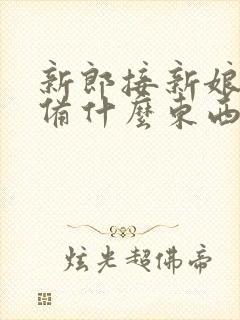 新郎接新娘
备什麼东西
炫光超佛帝